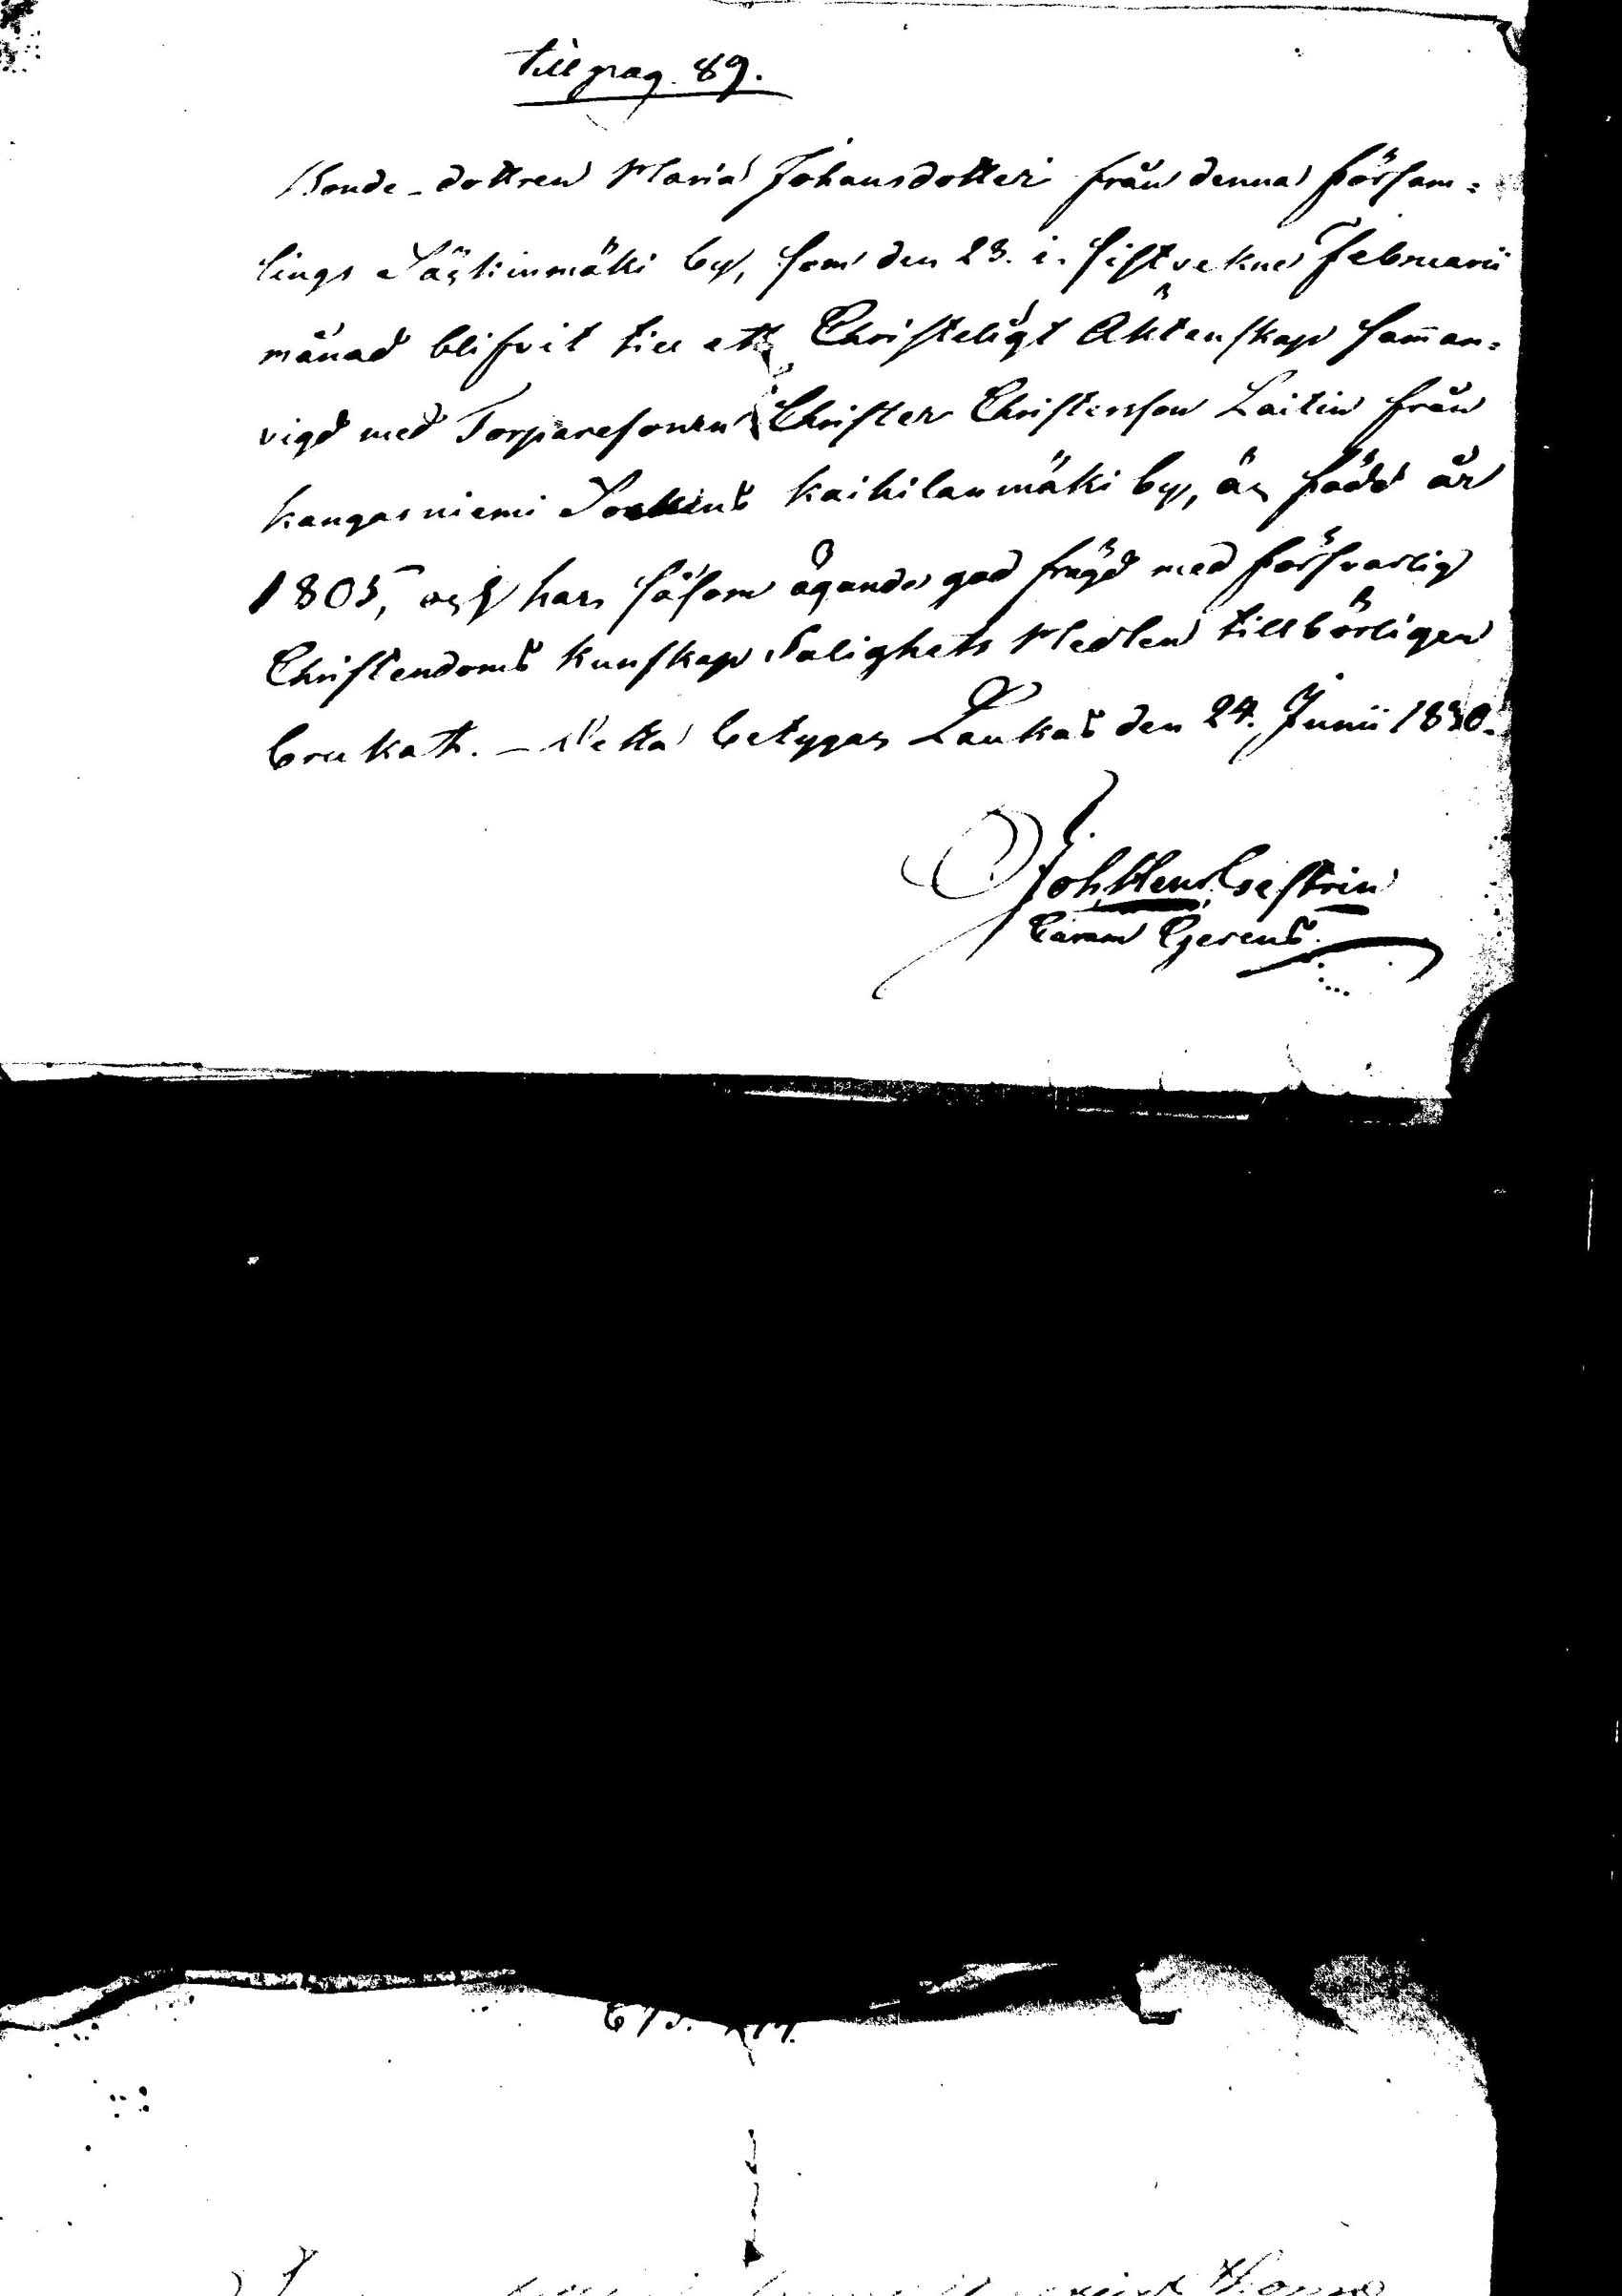 till pag. 89.
Bonde-dottren Maria Johansdotter från denna försam=
lings Säkinmäki by, som den 23. i. sistvekne Februarii
månad blifvit till ett Christeligt Äktenskap samman=
vigd med Torparesonen Christer Christersson Laitin från
Kangasniemi Sockens Kaihilanmäki by, är född år
1805, och har såsom ägande god frägd med försvarlig
Christendoms kunskap Salighets Medlen tillbörligen
brukat. – Detta betygar Laukas den 24. Junii 1830.
Joh. Henr. Cestrin
Curam Gerens.